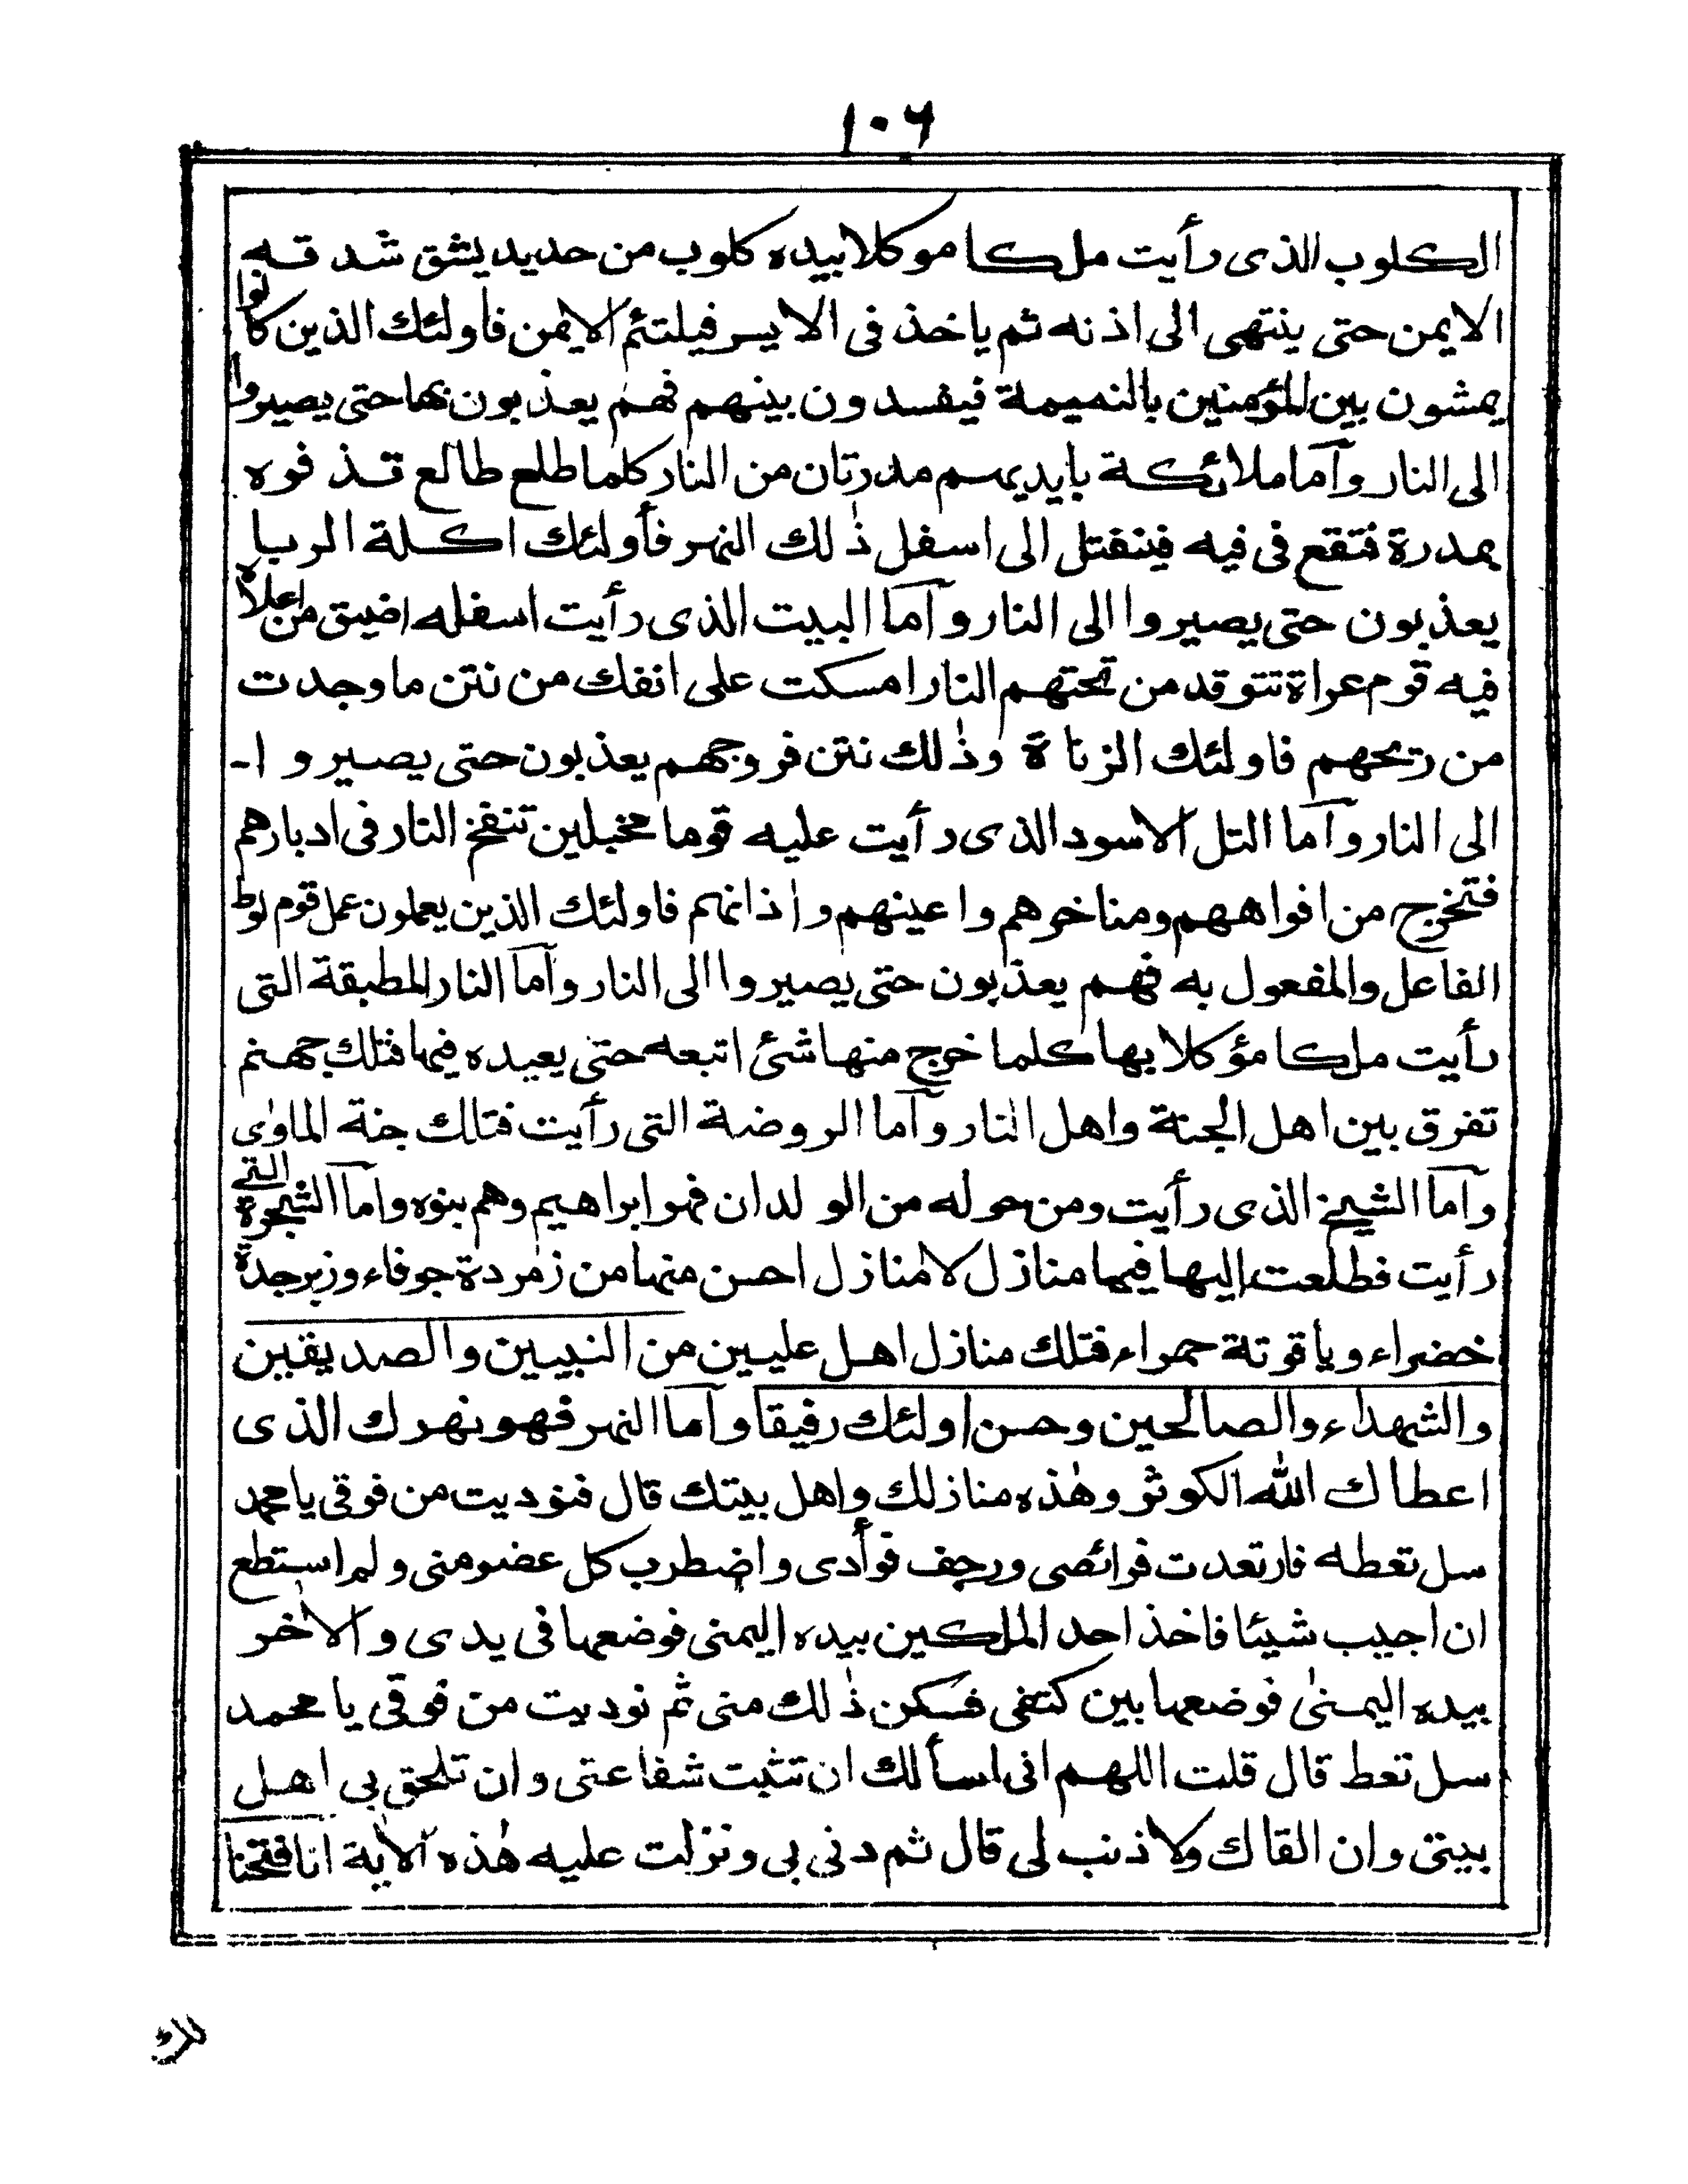 ١٠٦
الكلوب الذى رأيت ملكا موكلا بيده كلوب من حديد يشق شد قه
الايمن حتى ينتهى الى اذنه ثم ياخذ فى الايسر فيلتئم الايمن فاولئك الذين كانوا
يمشون بين المؤمنين بالنميمة فيفسدون بينهم فهم يعذبون بها حتى يصيروا
الى النار وآما ملائكة بايديهم مدرتان من النار كلما طلع طالع قذفوه
بمدرة فتقع فى فيه فينفتل الى اسفل ذٰلك النهر فأولئك اكلة الربا
يعذبون حتى يصيروا الى النار وآما البيت الذى رأيت اسفله اضيق من اعلاه
فيه قوم عراة تتوقد من تحتهم النار امسكت على انفك من نتن ما وجدت
من ريحهم فاولئك الزناة وذٰلك نتن فروجهم يعذبون حتى يصيروا
الى النار وآما التل الاسود الذى رأيت عليه قوما مخبلين تنفخ النار فى ادبارهم
فتخرج من افواههم ومناخرهم واعينهم واٰذانهم فاولئك الذين يعملون عمل قوم لوط
الفاعل والمفعول به فهم يعذبون حتى يصيروا الى النار وآما النار المطبقة التى
رأيت ملكا مؤكلا بها كلما خرج منها شئ اتبعه حتى يعيده فيها فتلك جهنم
تفرق بين اهل الجنة واهل النار وآما الروضة التى رأيت فتلك جنة الماوٰى
وآما الشيخ الذى رأيت ومن حوله من الولدان فهو ابراهيم وهم بنوه وآما الشجرة التى
رأيت فطلعت اليها فيها منازل لا منازل احسن منها من زمردة جوفاء وزبرجدة
خضراء وياقوتة حمراء فتلك منازل اهل عليين من النبيين والصديقين
والشهداء والصالحين وحسن اولئك رفيقا وآما النهر فهو نهرك الذى
اعطاك الله الكوثر وهٰذه منازلك واهل بيتك قال فنوديت من فوقى يا محمد
سل تعطه فارتعدت فرائصى ورجف فوأدى واضطرب كل عضو منى ولم استطع
ان اجيب شيئا فاخذ احد الملكين بيده اليمنى فوضعها فى يدى والاٰخر
بيده اليمنىٰ فوضعها بين كتفى فسكن ذٰلك منى ثم نوديت من فوقى يا محمد
سل تعط قال قلت اللهم انى اسألك ان تثبت شفاعتى وان تلحق بى اهل
بيتى وان القاك ولا ذنب لى قال ثم دنى بى ونزلت عليه هٰذه الآية انا فتحنا
لك